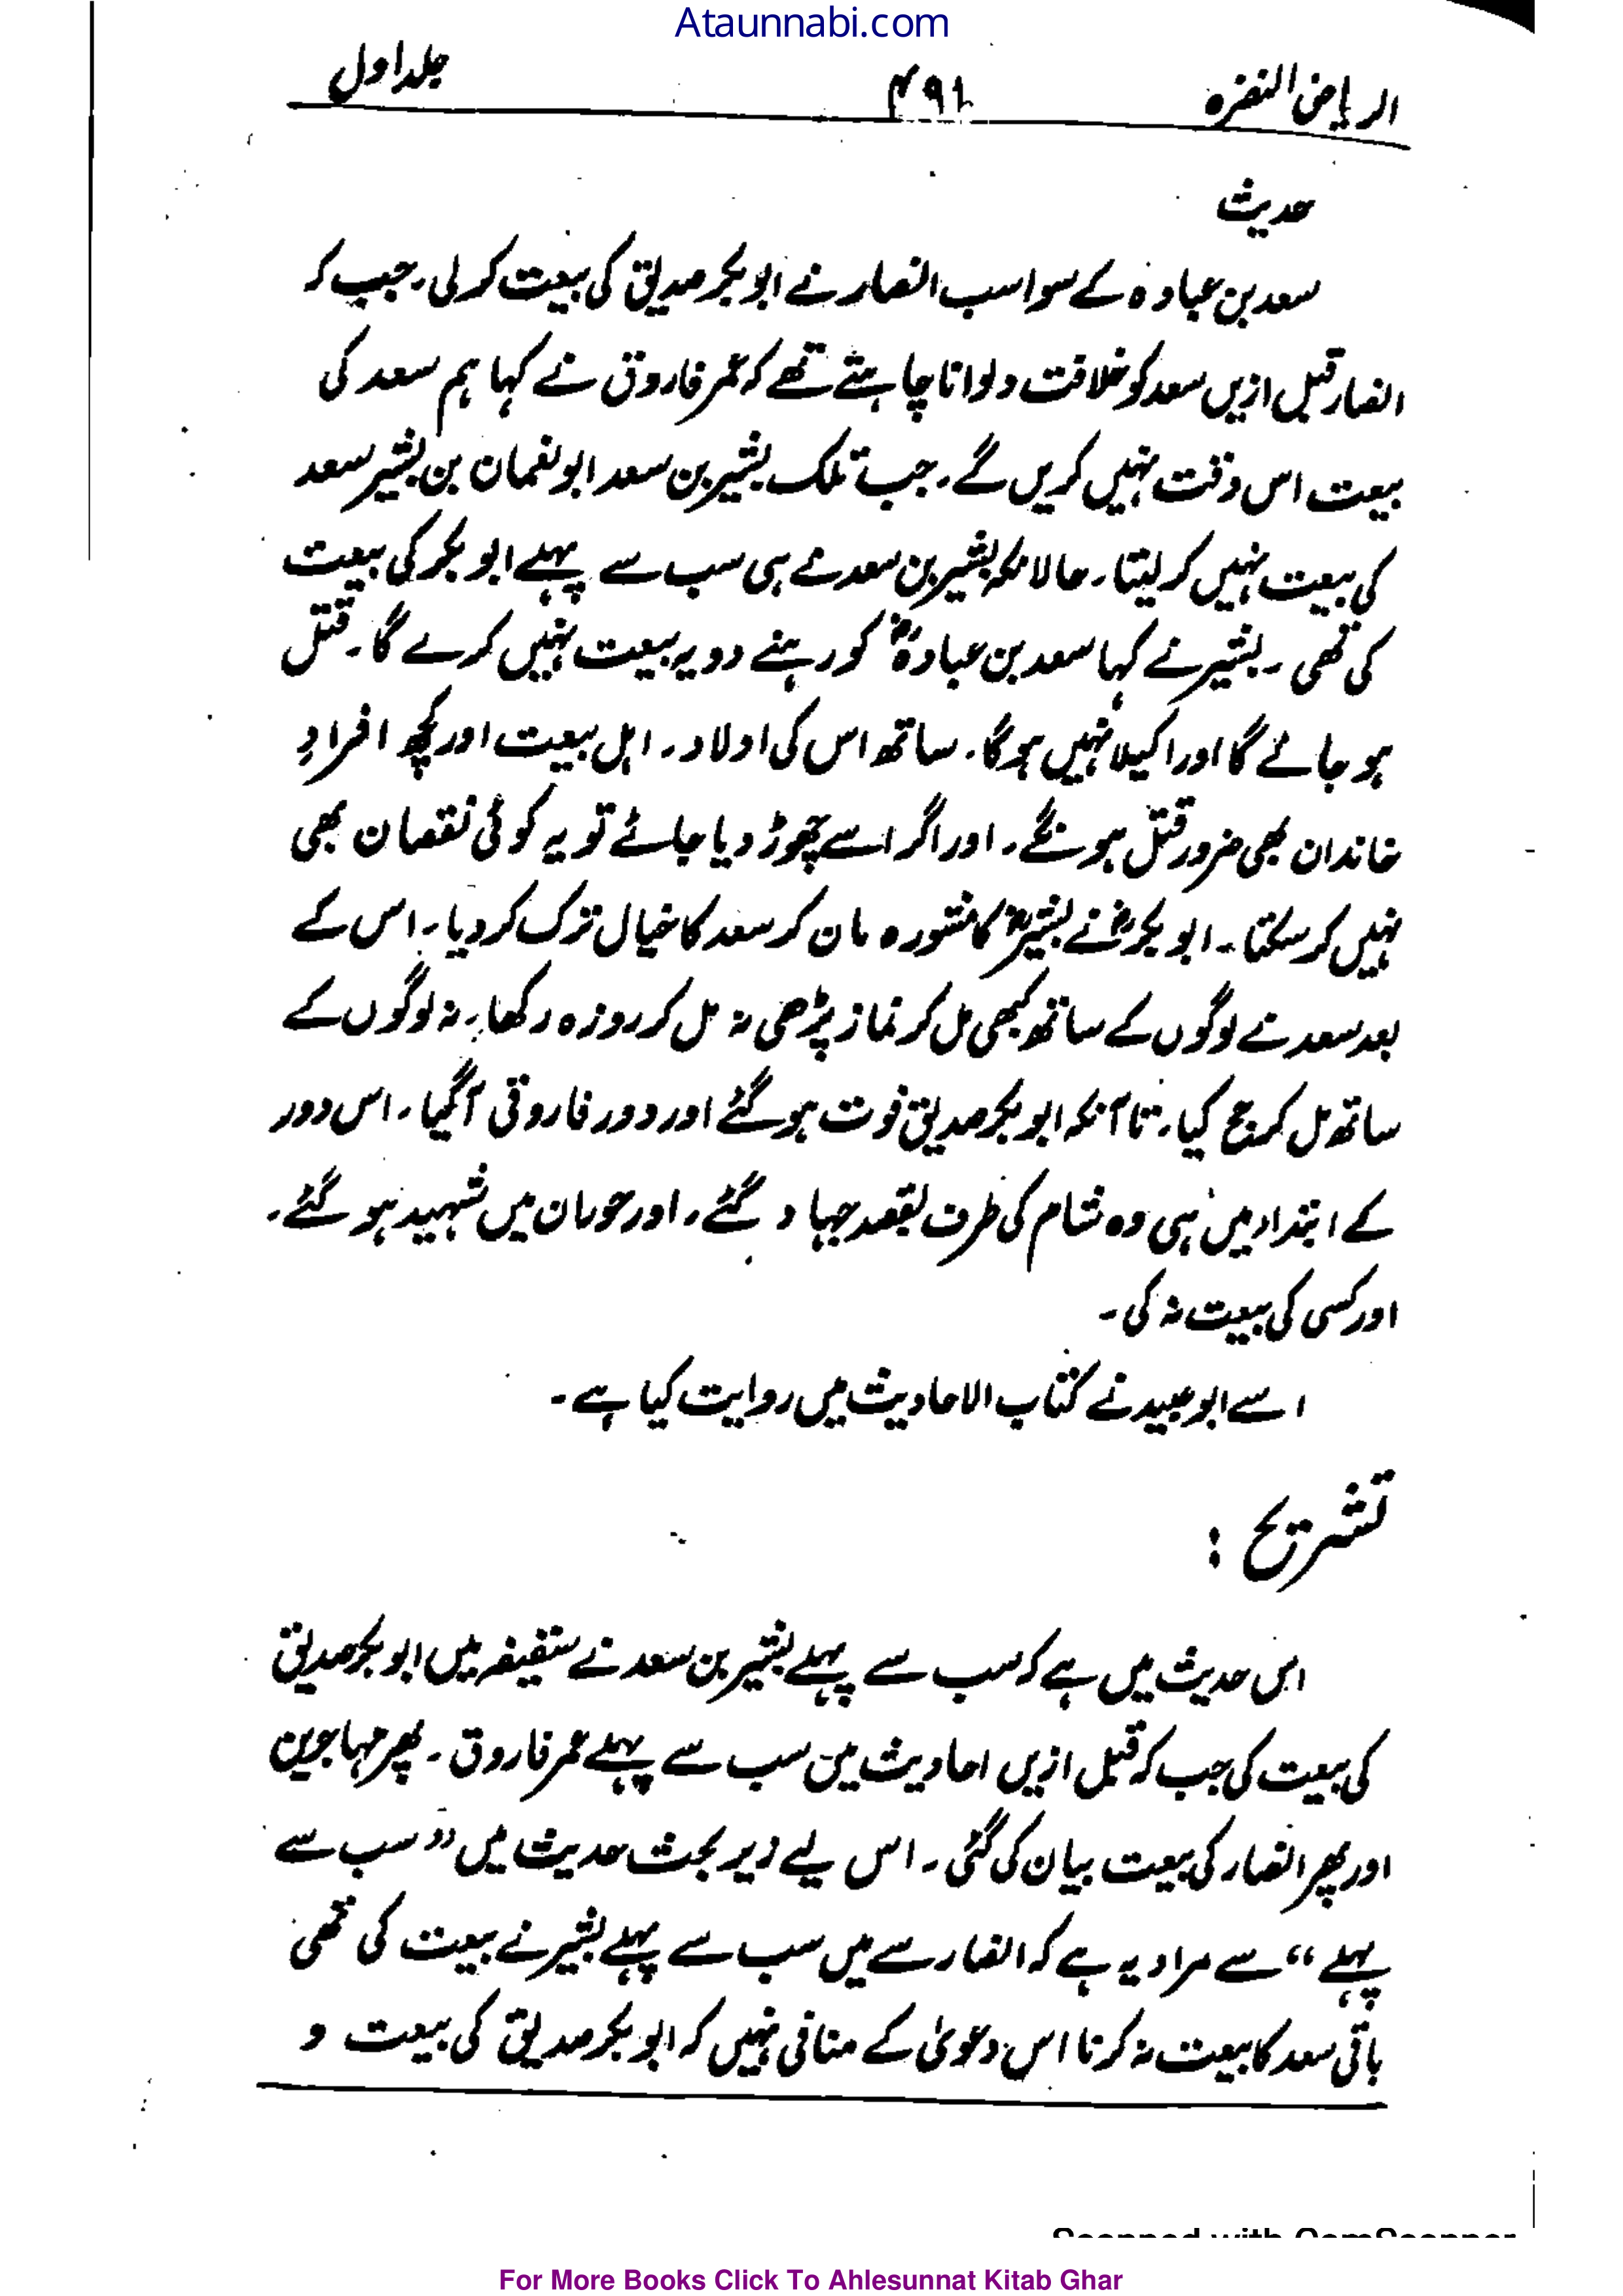 Ataunnabi.com
الریاض النضرہ ۴۹۱ جلد اول
حدیث
سعد بن عبادہ کے سوا سب انصار نے ابو بکر صدیق کی بیعت کر لی۔ جب کہ
انصار قبل ازیں سعد کو خلافت دلوانا چاہتے تھے کہ عمر فاروق نے کہا ہم سعد کی
بیعت اس وقت نہیں کریں گے۔ جب تلک بشیر بن سعد ابو نعمان بن بشیر سعد
کی بیعت نہیں کر لیتا۔ حالانکہ بشیر بن سعد نے ہی سب سے پہلے ابو بکر کی بیعت
کی تھی۔ بشیر نے کہا سعد بن عبادہؓ کو رہنے دو یہ بیعت نہیں کرے گا۔ قتل
ہو جائے گا اور اکیلا نہیں ہوگا۔ ساتھ اس کی اولاد۔ اہل بیعت اور کچھ افرادِ
خاندان بھی ضرور قتل ہونگے۔ اور اگر اسے چھوڑ دیا جائے تو یہ کوئی نقصان بھی
نہیں کر سکتا۔ ابو بکرؓ نے بشیرؓ کا مشورہ مان کر سعد کا خیال ترک کر دیا۔ اس کے
بعد سعد نے لوگوں کے ساتھ کبھی مل کر نماز پڑھی نہ مل کر روزہ رکھا۔ نہ لوگوں کے
ساتھ مل کر حج کیا۔ تا آنکہ ابو بکر صدیق فوت ہو گئے اور دور فاروقی آ گیا۔ اس دور
کے ابتداء میں ہی وہ شام کی طرف بقصد جہاد گئے۔ اور حوران میں شہید ہو گئے۔
اور کسی کی بیعت نہ کی۔
اسے ابو عبید نے کتاب الاحادیث میں روایت کیا ہے۔
تشریح :
اس حدیث میں ہے کہ سب سے پہلے بشیر بن سعد نے سقیفہ میں ابو بکر صدیق
کی بیعت کی جب کہ قبل ازیں احادیث میں سب سے پہلے عمر فاروق۔ پھر مہاجرین
اور پھر انصار کی بیعت بیان کی گئی۔ اس لیے زیر بحث حدیث میں ”سب سے
پہلے“ سے مراد یہ ہے کہ انصار سے میں سب سے پہلے بشیر نے بیعت کی تھی
باقی سعد کا بیعت نہ کرنا اس دعویٰ کے منافی نہیں کہ ابو بکر صدیق کی بیعت و
Scanned with CamScanner
For More Books Click To Ahlesunnat Kitab Ghar